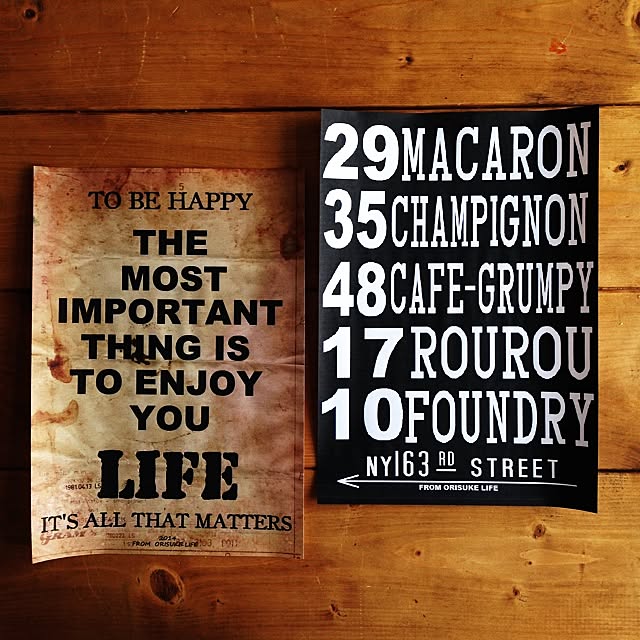 TO BE HAPPY
THE
MOST
IMPORTANT
THING IS
TO ENJOY
YOU
LIFE
IT'S ALL THAT MATTERS
2014
FROM ORISUKE LIFE
29 MACARON
35 CHAMPIGNON
48 CAFE-GRUMPY
17 ROUROU
10 FOUNDRY
NY163 RD STREET
FROM ORISUKE LIFE